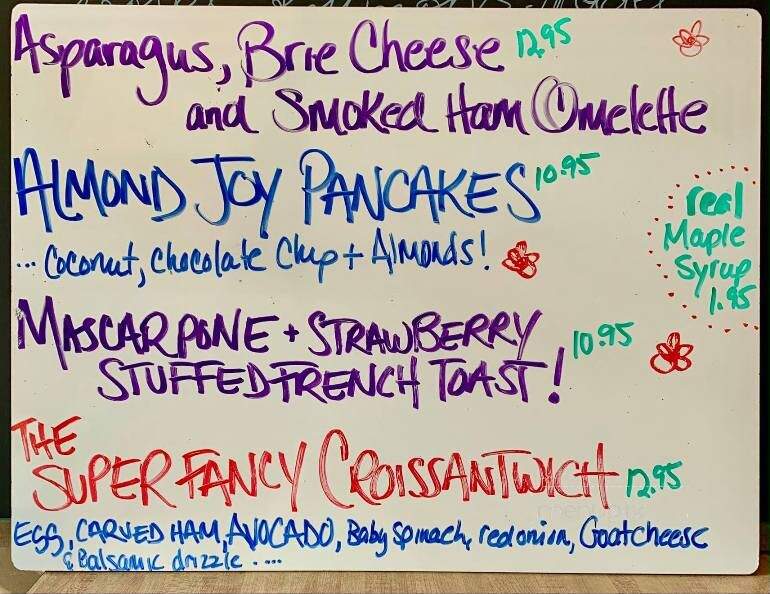 Asparagus, Brie Cheese 12.95
and Smoked Ham Omelette
ALMOND JOY PANCAKES 10.95
... Coconut, chocolate Chip + Almonds!
real
Maple
Syrup
1.95
MASCARPONE + STRAWBERRY
STUFFED FRENCH TOAST! 10.95
THE
SUPER FANCY CROISSANTWICH 12.95
EGG, CARVED HAM, AVOCADO, Baby Spinach, red onion, Goat cheese
& Balsamic drizzle ....